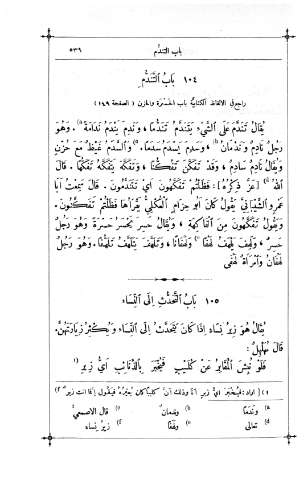 باب التندم
٥٣٦
١٠٤ بَابُ ٱلتَّنَدُّمِ
راجع في الالفاظ الكتابية باب الحسرة والحزن (الصفحة ١٦٩)
يُقَالُ تَنَدَّمَ عَلَى ٱلشَّيْءِ يَتَنَدَّمُ تَنَدُّمًا ، وَنَدِمَ يَنْدَمُ نَدَامَةً . وَهُوَ
رَجُلٌ نَادِمٌ وَنَدْمَانُ ، وَسَدِمَ يَسْدَمُ سَدَمًا . وَٱلسَّدَمُ غَيْظٌ مَعَ حُزْنٍ
وَيُقَالُ نَادِمٌ سَادِمٌ ، وَقَدْ تَفَكَّنَ تَفَكُّنًا ، وَتَفَكَّهَ يَتَفَكَّهُ تَفَكُّهًا . قَالَ
ٱللهُ [عَزَّ ذِكْرُهُ] : فَظَلْتُمْ تَفَكَّهُونَ أَيْ تَنَدَّمُونَ . قَالَ سَمِعْتُ أَبَا
عَمْرٍو ٱلشَّيْبَانِيَّ يَقُولُ كَانَ أَبُو حِزَامٍ ٱلْعُكْلِيُّ يَقْرَأُهَا فَظَلْتُمْ تَفَكَّنُونَ .
وَيَقُولُ تَفَكَّهُونَ مِنَ ٱلْفَاكِهَةِ ، وَيُقَالُ حَسِرَ يَحْسَرُ حَسْرَةً وَهُوَ رَجُلٌ
حَسِرٌ ، وَلَهِفَ يَلْهَفُ لَهَفًا وَلَهَفَانًا ، وَتَلَهَّفَ يَتَلَهَّفُ تَلَهُّفًا . وَهُوَ رَجُلٌ
لَهْفَانُ وَٱمْرَأَةٌ لَهْفَى
١٠٥ بَابُ ٱلتَّحَدُّثِ إِلَى ٱلنِّسَاءِ
يُقَالُ هُوَ زِيرُ نِسَاءٍ إِذَا كَانَ يَتَحَدَّثُ إِلَى ٱلنِّسَاءِ وَيُكْثِرُ زِيَارَتَهُنَّ .
قَالَ مُهَلْهِلٌ :
فَلَوْ نُبِشَ ٱلْمَقَابِرُ عَنْ كُلَيْبٍ فَيُخْبَرَ بِٱلذَّنَائِبِ أَيُّ زِيرِ (١
١) [اراد : فيخبر اي زير انا وذلك ان كليبا كان يعيره فيقول انما انت زير
a) وندما b) وندمان c) قال الاصمعي
d) تعالى e) ولهفا f) زير نساء